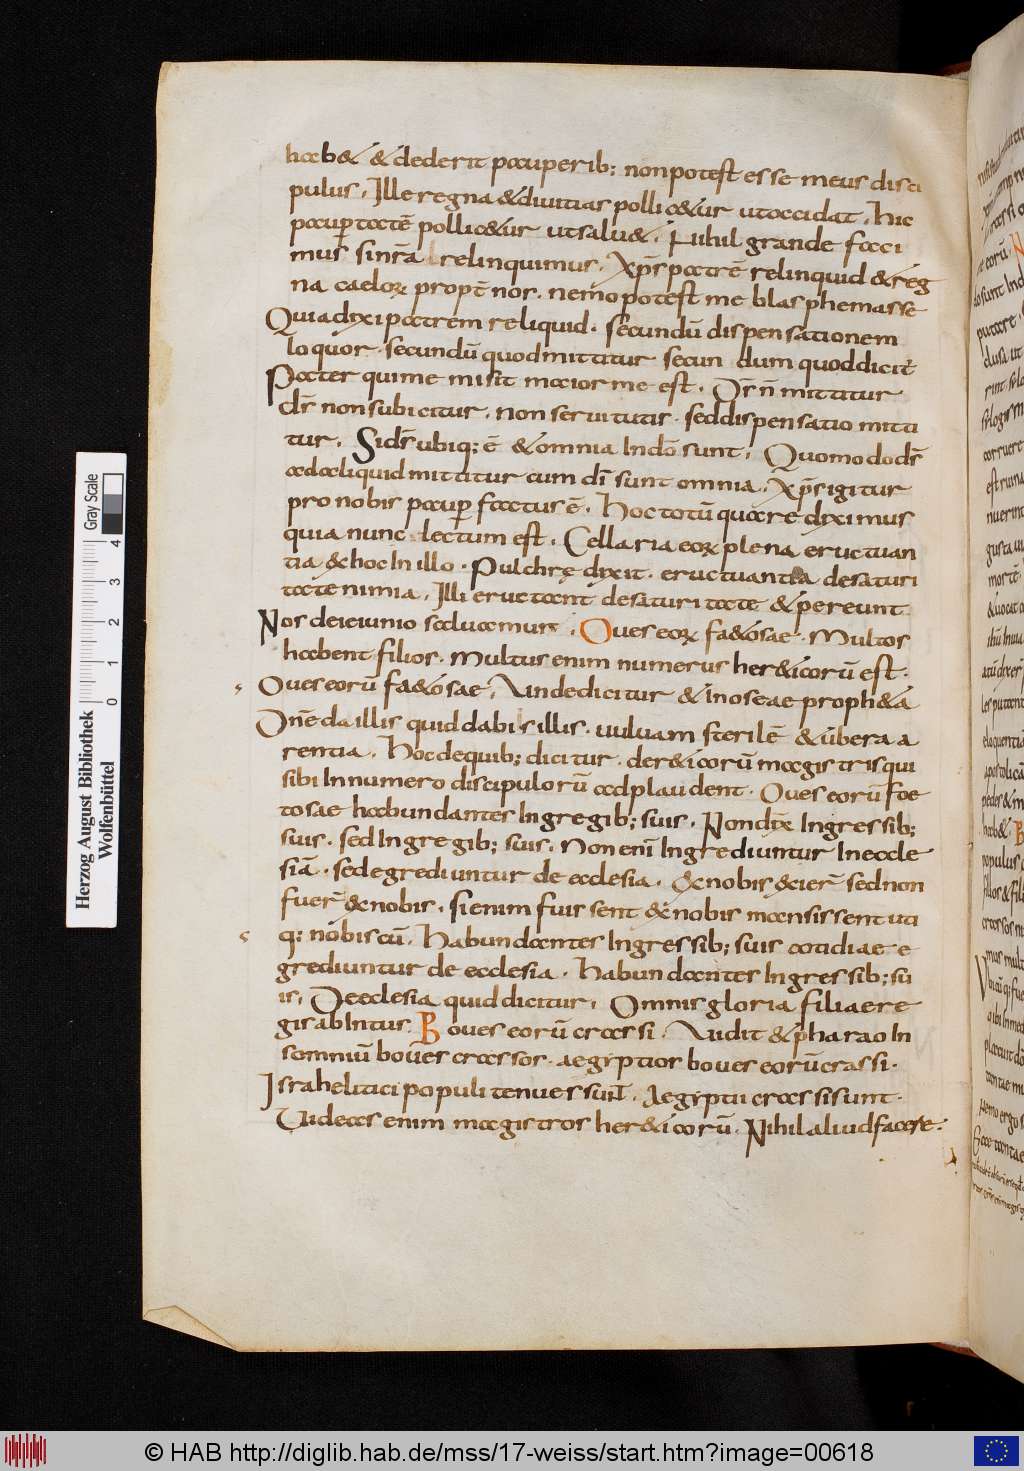 hab& & dederit pauperib; non potest esse meus disci
pulus. Ille regna & diuitias pollic&ur ut occidat. Hic
paup̄tatē pollic&ur ut salu&. Nihil grande faci
mus si nr̄a relinquimus. Xp̄s patrē relinquid & reg
na caeloꝝ propt̄ nos. nemo potest me blasphemasse
Quia dixi patrem reliquid. secundū dispensationem
loquor. secundū quod mittitur secundum quod dicit̄
Pater qui me misit maior me est. Dr̄ n̄ mittitur
dr̄ non subicitur. non seruitutis. sed dispensatio mitti
tur. Si ds̄ ubiq; ē & omnia In dō sunt. Quomodo ds̄
ad aliquid mittitur cum dī sunt omnia. Xp̄s igitur
pro nobis paup̄ factus ē. Hoc totū quare diximus
quia nunc lectum est. Cellaria eoꝝ plena eructuan
tia & hoc In illo. Pulchrę dixit. eructuantia de saturi
tate nimia. Illi eructant de saturitate & pereunt
Nos de ieiunio saluamur. Oues eoꝝ fa&osae. Multos
habent filios. Multus enim numerus her&icorū est.
Oues eorū fa&osae. Unde dicitur & In oseae proph&a
Dn̄e da illis quid dabis illis. uuluam sterilē & ūbera a
rentia. Hoc de quib; dicitur. de r&icorū magistris qui
sibi In numero discipulorū adplaudent. Oues eorū foe
tosae habundantes In gregib; suis. Non dix̄ Ingressib;
suis. sed In gregib; suis. Non enī Ingrediuntur In eccle
siā. sed egrediuntur de ecclesia. Ex nobis exierr̄ sed non
fuer̄ ex nobis. si enim fuissent ex nobis mansissent uti
q; nobiscū. Habundantes Ingressib; suis cotidiae e
grediuntur de ecclesia. Habundantes Ingressib; su
is. De eclesia quid dicitur. Omnis gloria filiae re
gis ab Intus. Boues eorū crassi. Uidit & pharao In
somniū boues crassos. aegyptior boues eorū crassi.
Israhelitici populi tenues sunt. Aegyptii crassi sunt.
Uideas enim magistros her&icorū. Nihil aliud facere.
Herzog August Bibliothek
Wolfenbüttel
0 1 2 3 4
Gray Scale
© HAB http://diglib.hab.de/mss/17-weiss/start.htm?image=00618